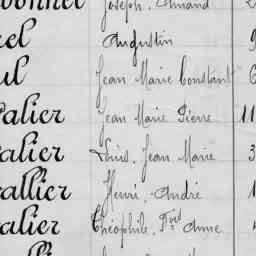 Joseph. Amand 2
Augustin 9
Jean Marie Constant 6
alier Jean Marie Pierre 11
alier Louis, Jean Marie 3
allier Henri. André 1
alier Théophile, Fçois Anne